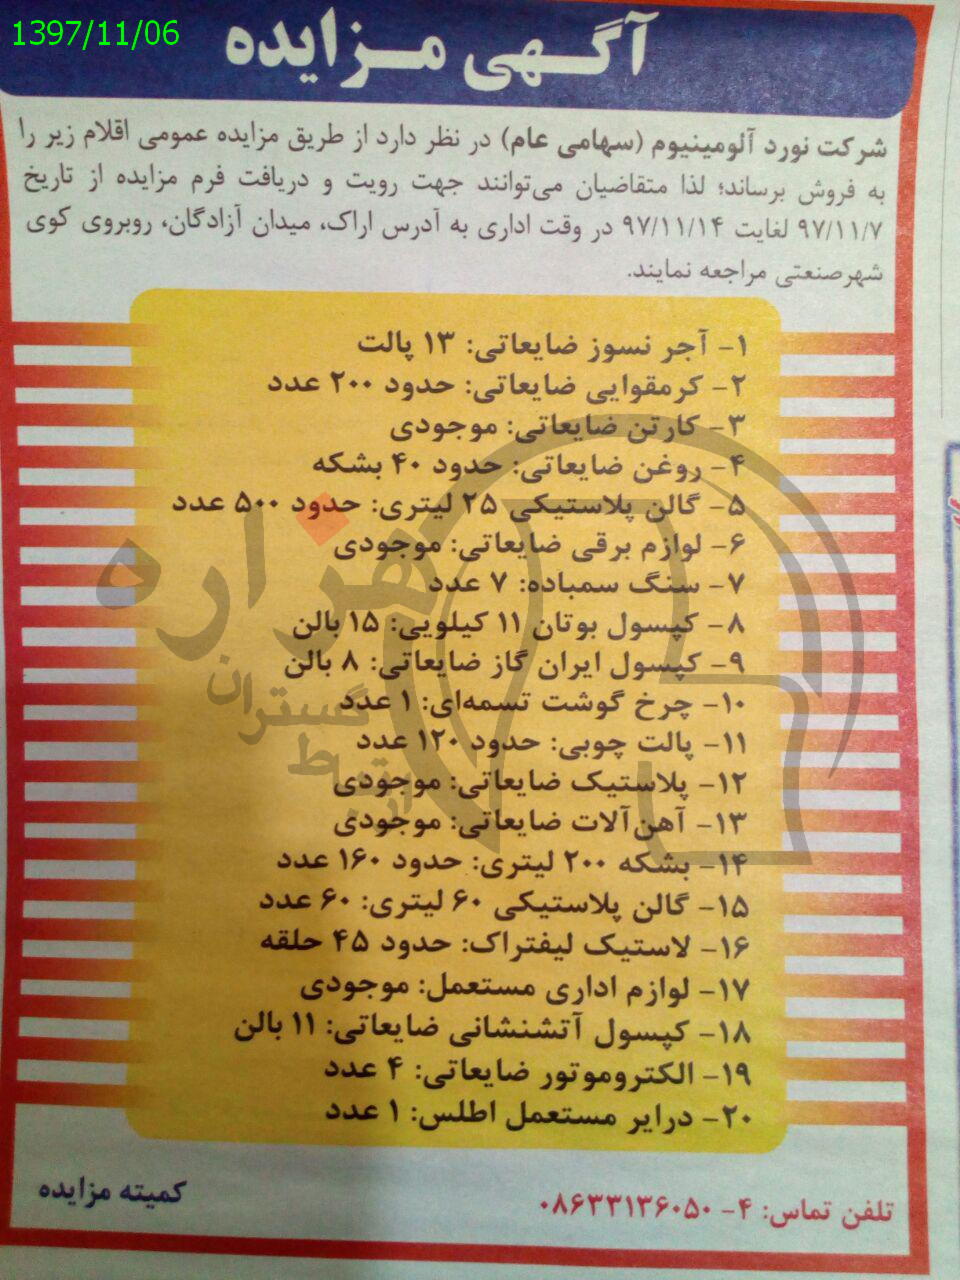 1397/11/06
آگهی مزایده
شرکت نورد آلومینیوم (سهامی عام) در نظر دارد از طریق مزایده عمومی اقلام زیر را
به فروش برساند؛ لذا متقاضیان می‌توانند جهت رویت و دریافت فرم مزایده از تاریخ
۹۷/۱۱/۷ لغایت ۹۷/۱۱/۱۴ در وقت اداری به آدرس اراک، میدان آزادگان، روبروی کوی
شهرصنعتی مراجعه نمایند.
۱- آجر نسوز ضایعاتی: ۱۳ پالت
۲- کرمقوایی ضایعاتی: حدود ۲۰۰ عدد
۳- کارتن ضایعاتی: موجودی
۴- روغن ضایعاتی: حدود ۴۰ بشکه
۵- گالن پلاستیکی ۲۵ لیتری: حدود ۵۰۰ عدد
۶- لوازم برقی ضایعاتی: موجودی
۷- سنگ سمباده: ۷ عدد
۸- کپسول بوتان ۱۱ کیلویی: ۱۵ بالن
۹- کپسول ایران گاز ضایعاتی: ۸ بالن
۱۰- چرخ گوشت تسمه‌ای: ۱ عدد
۱۱- پالت چوبی: حدود ۱۲۰ عدد
۱۲- پلاستیک ضایعاتی: موجودی
۱۳- آهن‌آلات ضایعاتی: موجودی
۱۴- بشکه ۲۰۰ لیتری: حدود ۱۶۰ عدد
۱۵- گالن پلاستیکی ۶۰ لیتری: ۶۰ عدد
۱۶- لاستیک لیفتراک: حدود ۴۵ حلقه
۱۷- لوازم اداری مستعمل: موجودی
۱۸- کپسول آتشنشانی ضایعاتی: ۱۱ بالن
۱۹- الکتروموتور ضایعاتی: ۴ عدد
۲۰- درایر مستعمل اطلس: ۱ عدد
هزاره
گستران
ارتباط
تلفن تماس: ۴- ۰۸۶۳۳۱۳۶۰۵۰
کمیته مزایده